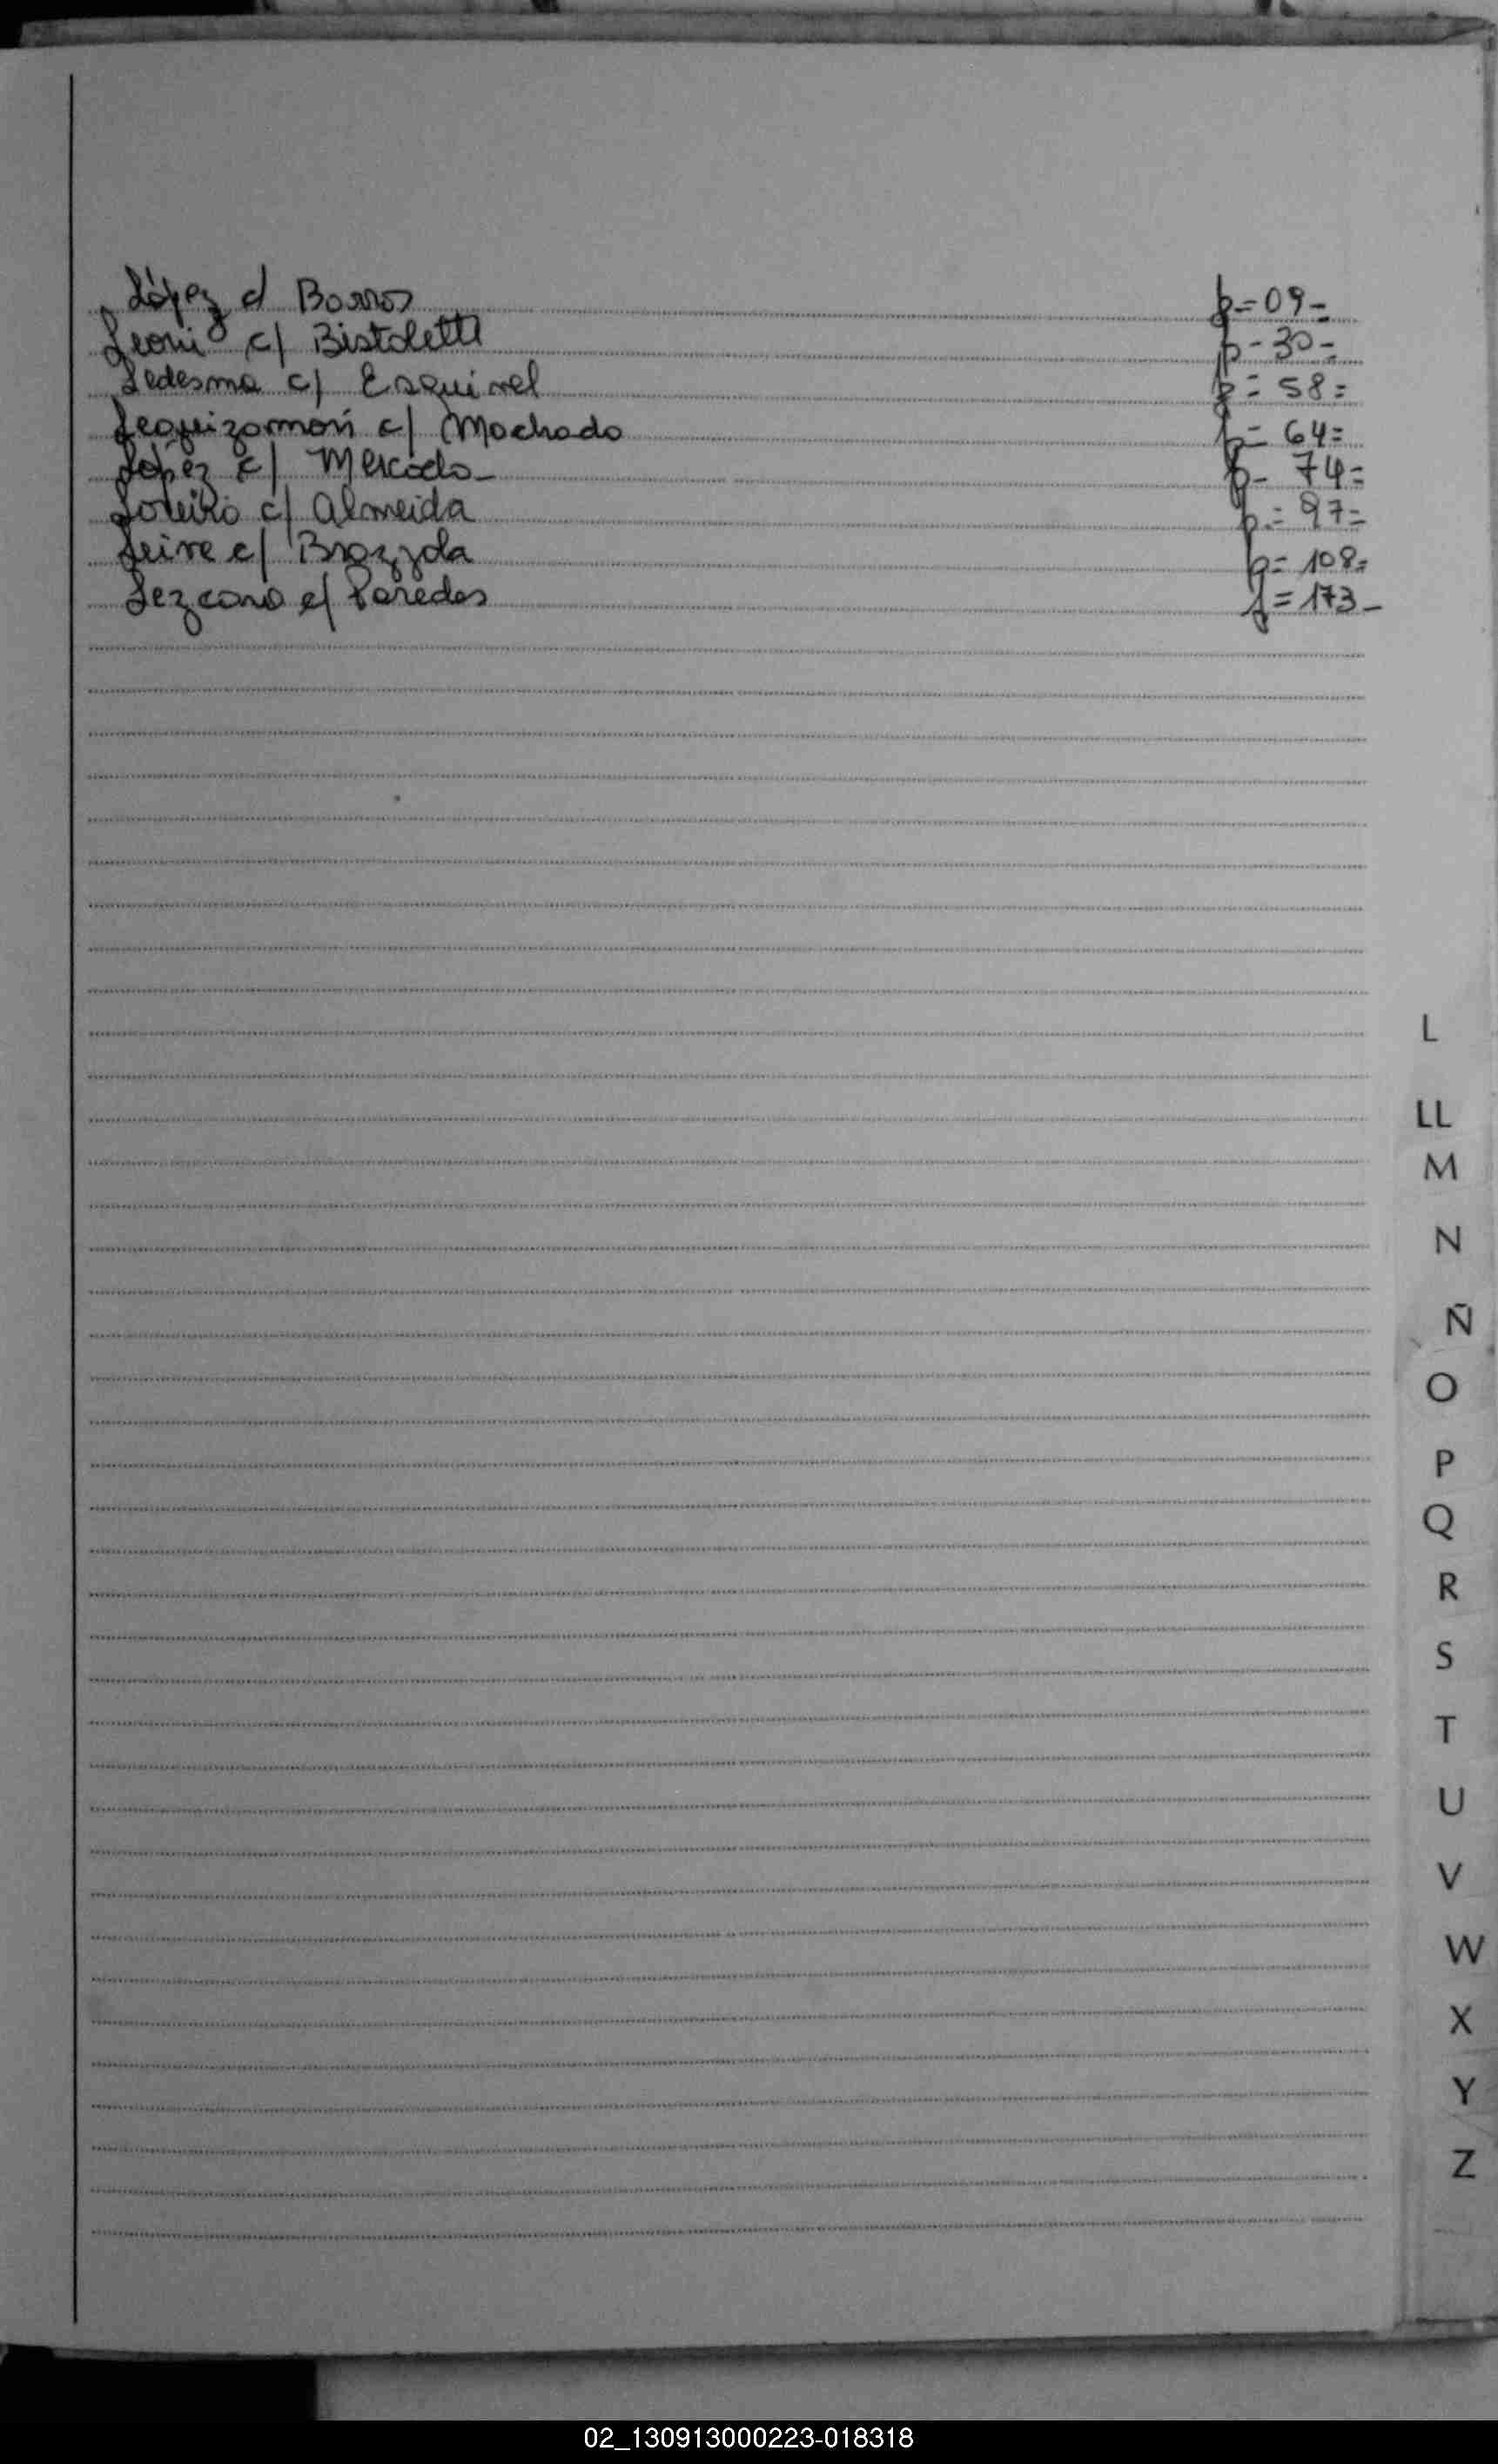 López c/ Barros p=09=
Leoni c/ Bistoletti p-30=
Ledesma c/ Esquivel p=58=
Leguizamón c/ Machado p=64=
López c/ Mercado- p- 74=
Loreiro c/ Almeida p.=97=
Leive c/ Brazzola p=108=
Lezcano c/ Paredes p=173-
L
LL
M
N
Ñ
O
P
Q
R
S
T
U
V
W
X
Y
Z
02_130913000223-018318